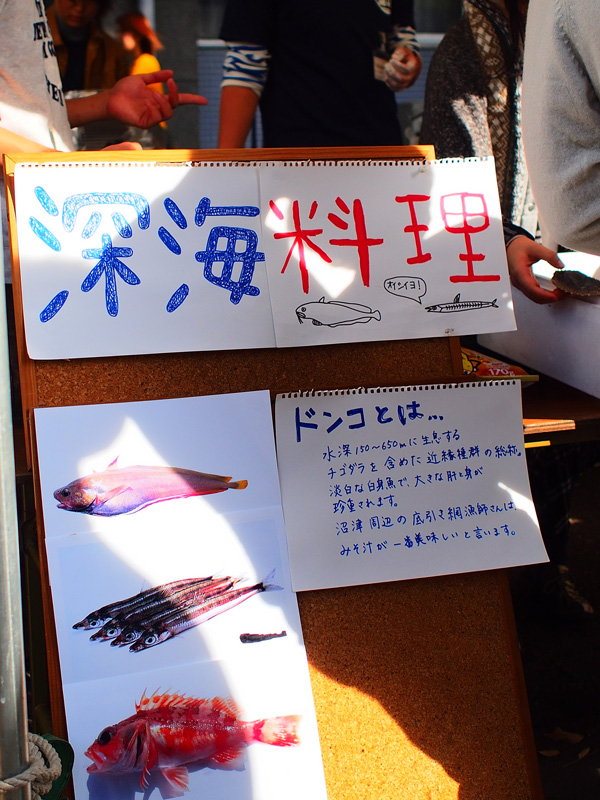 深海料理
オイシイヨ!
ドンコとは...
水深150~650mに生息する
チゴダラを含めた近縁種群の総称。
淡白な白身魚で、大きな肝と身が
珍重されます。
沼津周辺の底引き網漁師さんは、
みそ汁が一番美味しいと言います。
170g